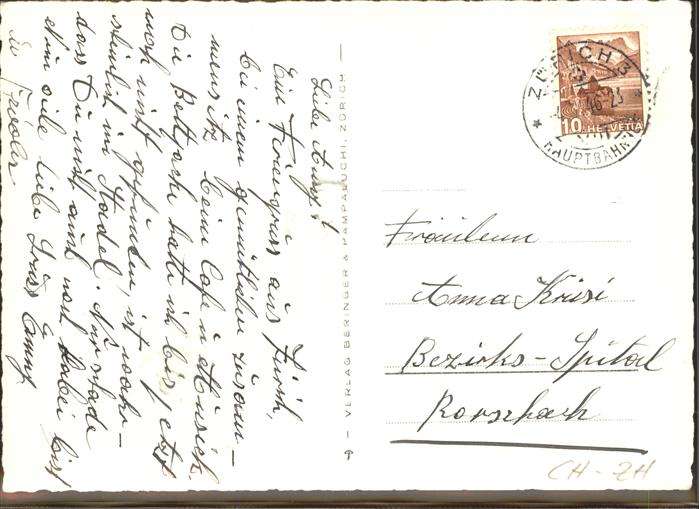 Liebe Anny!
Ein Feriengruss aus Zürich,
bei einem gemütlichen Zusam-
mensitz beim Cafe u Musick.
Die Bettjacke hatte ich bis jetzt
noch nicht gefunden, ist wahr-
scheinlich im Stadel. Nur schade
dass Du nicht auch noch dabei bist
Nim viele liebe Grüsse Emmy
VERLAG BERINGER & PAMPALUCHI, ZÜRICH
ZÜRICH 3
HAUPTBAHNH
10 HELVETIA
Fräulein
Anna Krisi
Bezirks-Spital
Rorschach
CH-ZH